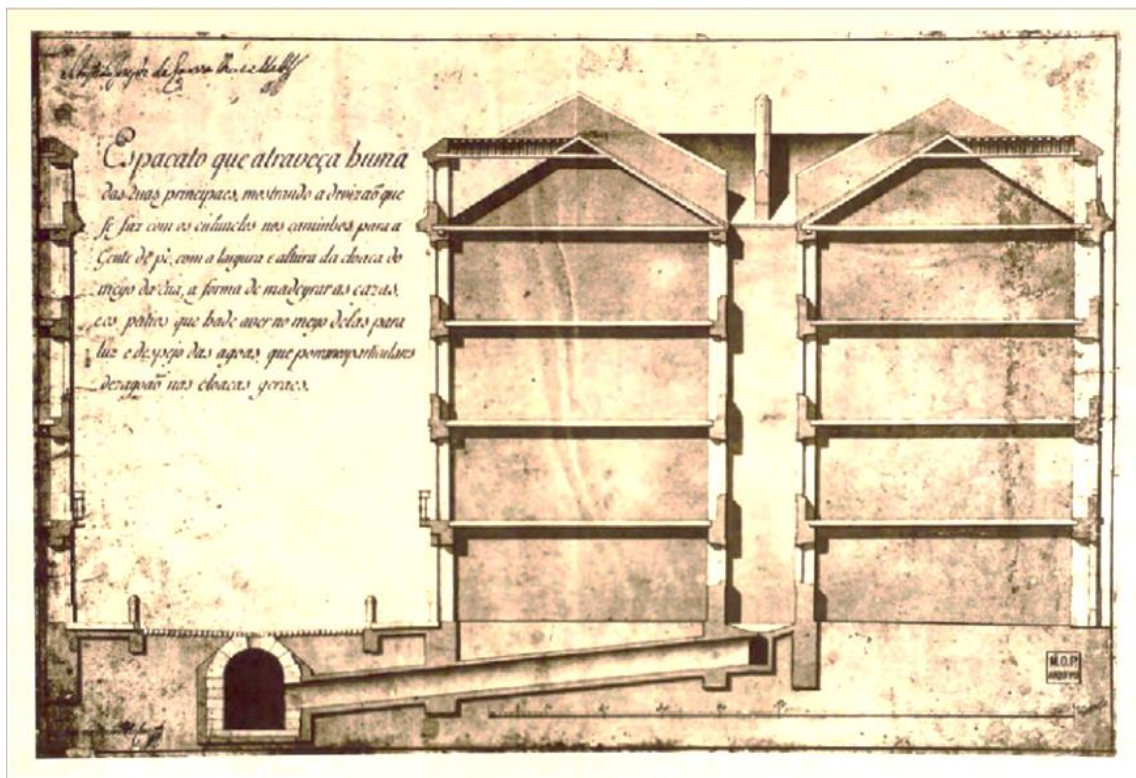 Espacato que atraveça huma
das ruas principaes, mostrando a divizaõ que
se faz com os culunelos nos caminhos para a
Gente de pé, com a largura e altura da cloaca do
meyo da rua, a forma de madeyrar as cazas,
e os patios que hade aver no meyo delas para
luz e despejo das agoas, que por
dezagoaõ nas cloacas geraes.
M.O.P.
ARQUIVO